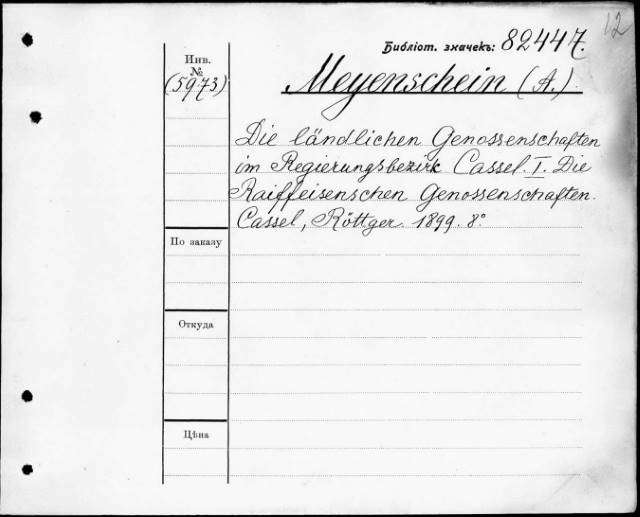 12
Библіот. значекъ: 82447.
Инв.
№
(5973)
Meyenschein (A.).
Die ländlichen Genossenschaften
im Regierungsbezirk Cassel. I. Die
Raiffeisenschen Genossenschaften.
Cassel, Röttger. 1899. 8°
По заказу
Откуда
Цѣна